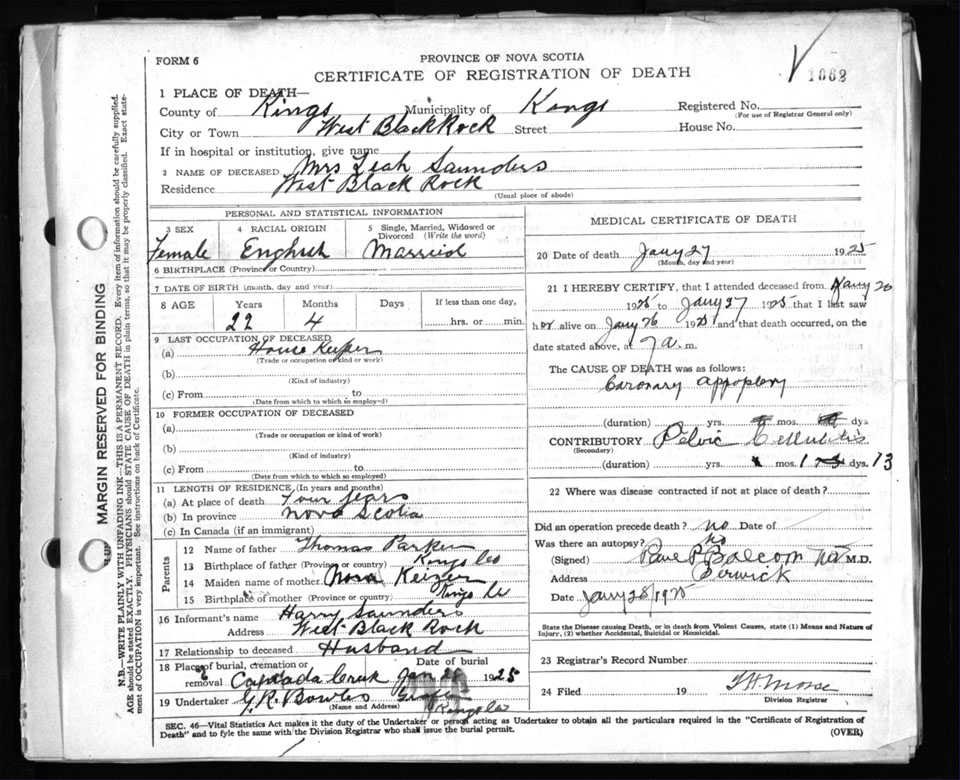 FORM 6
PROVINCE OF NOVA SCOTIA
CERTIFICATE OF REGISTRATION OF DEATH
1062
1 PLACE OF DEATH—
County of Kings Municipality of Kings Registered No.
(For use of Registrar General only)
City or Town West Black Rock Street House No.
If in hospital or institution, give name
2 NAME OF DECEASED Mrs Leah Saunders
Residence West Black Rock
(Usual place of abode)
MARGIN RESERVED FOR BINDING
N.B.—WRITE PLAINLY WITH UNFADING INK—THIS IS A PERMANENT RECORD. Every item of information should be carefully supplied.
AGE should be stated EXACTLY. PHYSICIANS should STATE CAUSE OF DEATH in plain terms, so that it may be properly classified. Exact state-
ment of OCCUPATION is very important. See instructions on back of Certificate.
PERSONAL AND STATISTICAL INFORMATION
3 SEX Female
4 RACIAL ORIGIN English
5 Single, Married, Widowed or Divorced (Write the word) Married
6 BIRTHPLACE (Province or Country)
7 DATE OF BIRTH (month, day and year)
8 AGE Years 22 Months 4 Days If less than one day, hrs. or min.
9 LAST OCCUPATION OF DECEASED
(a) House Keeper
(Trade or occupation or kind or work)
(b)
(Kind of industry)
(c) From to
(Date from which to which so employed)
10 FORMER OCCUPATION OF DECEASED
(a)
(Trade or occupation or kind of work)
(b)
(Kind of industry)
(c) From to
(Date from which to which so employed)
11 LENGTH OF RESIDENCE (In years and months)
(a) At place of death Four years
(b) In province Nova Scotia
(c) In Canada (if an immigrant)
Parents
12 Name of father Thomas Parker
13 Birthplace of father (Province or country) Kings Co
14 Maiden name of mother Nora Keizer
15 Birthplace of mother (Province or country) Kings Co
16 Informant's name Harry Saunders
Address West Black Rock
17 Relationship to deceased Husband
18 Place of burial, cremation or removal Canada Creek Date of burial Jan 1925
19 Undertaker G. R. Bowles
(Name and Address) Kings Co
MEDICAL CERTIFICATE OF DEATH
20 Date of death Jany 27 1925
(Month, day and year)
21 I HEREBY CERTIFY, that I attended deceased from Jany 20
1925 to Jany 27 1925 that I last saw
her alive on Jany 26 1925 and that death occurred, on the
date stated above, at 7 a. m.
The CAUSE OF DEATH was as follows:
Coronary appoplexy
(duration) yrs. mos. dys
CONTRIBUTORY Pelvic Cellulitis
(Secondary)
(duration) yrs. mos. 1 dys. 13
22 Where was disease contracted if not at place of death?
Did an operation precede death? no Date of
Was there an autopsy? no
(Signed) Balcom M.D.
Address Berwick
Date Jany 28/1925
State the Disease causing Death, or in death from Violent Causes, state (1) Means and Nature of
Injury, (2) whether Accidental, Suicidal or Homicidal.
23 Registrar's Record Number
24 Filed 19 Morse
Division Registrar
SEC. 46—Vital Statistics Act makes it the duty of the Undertaker or person acting as Undertaker to obtain all the particulars required in the "Certificate of Registration of
Death" and to fyle the same with the Division Registrar who shall issue the burial permit.
(OVER)